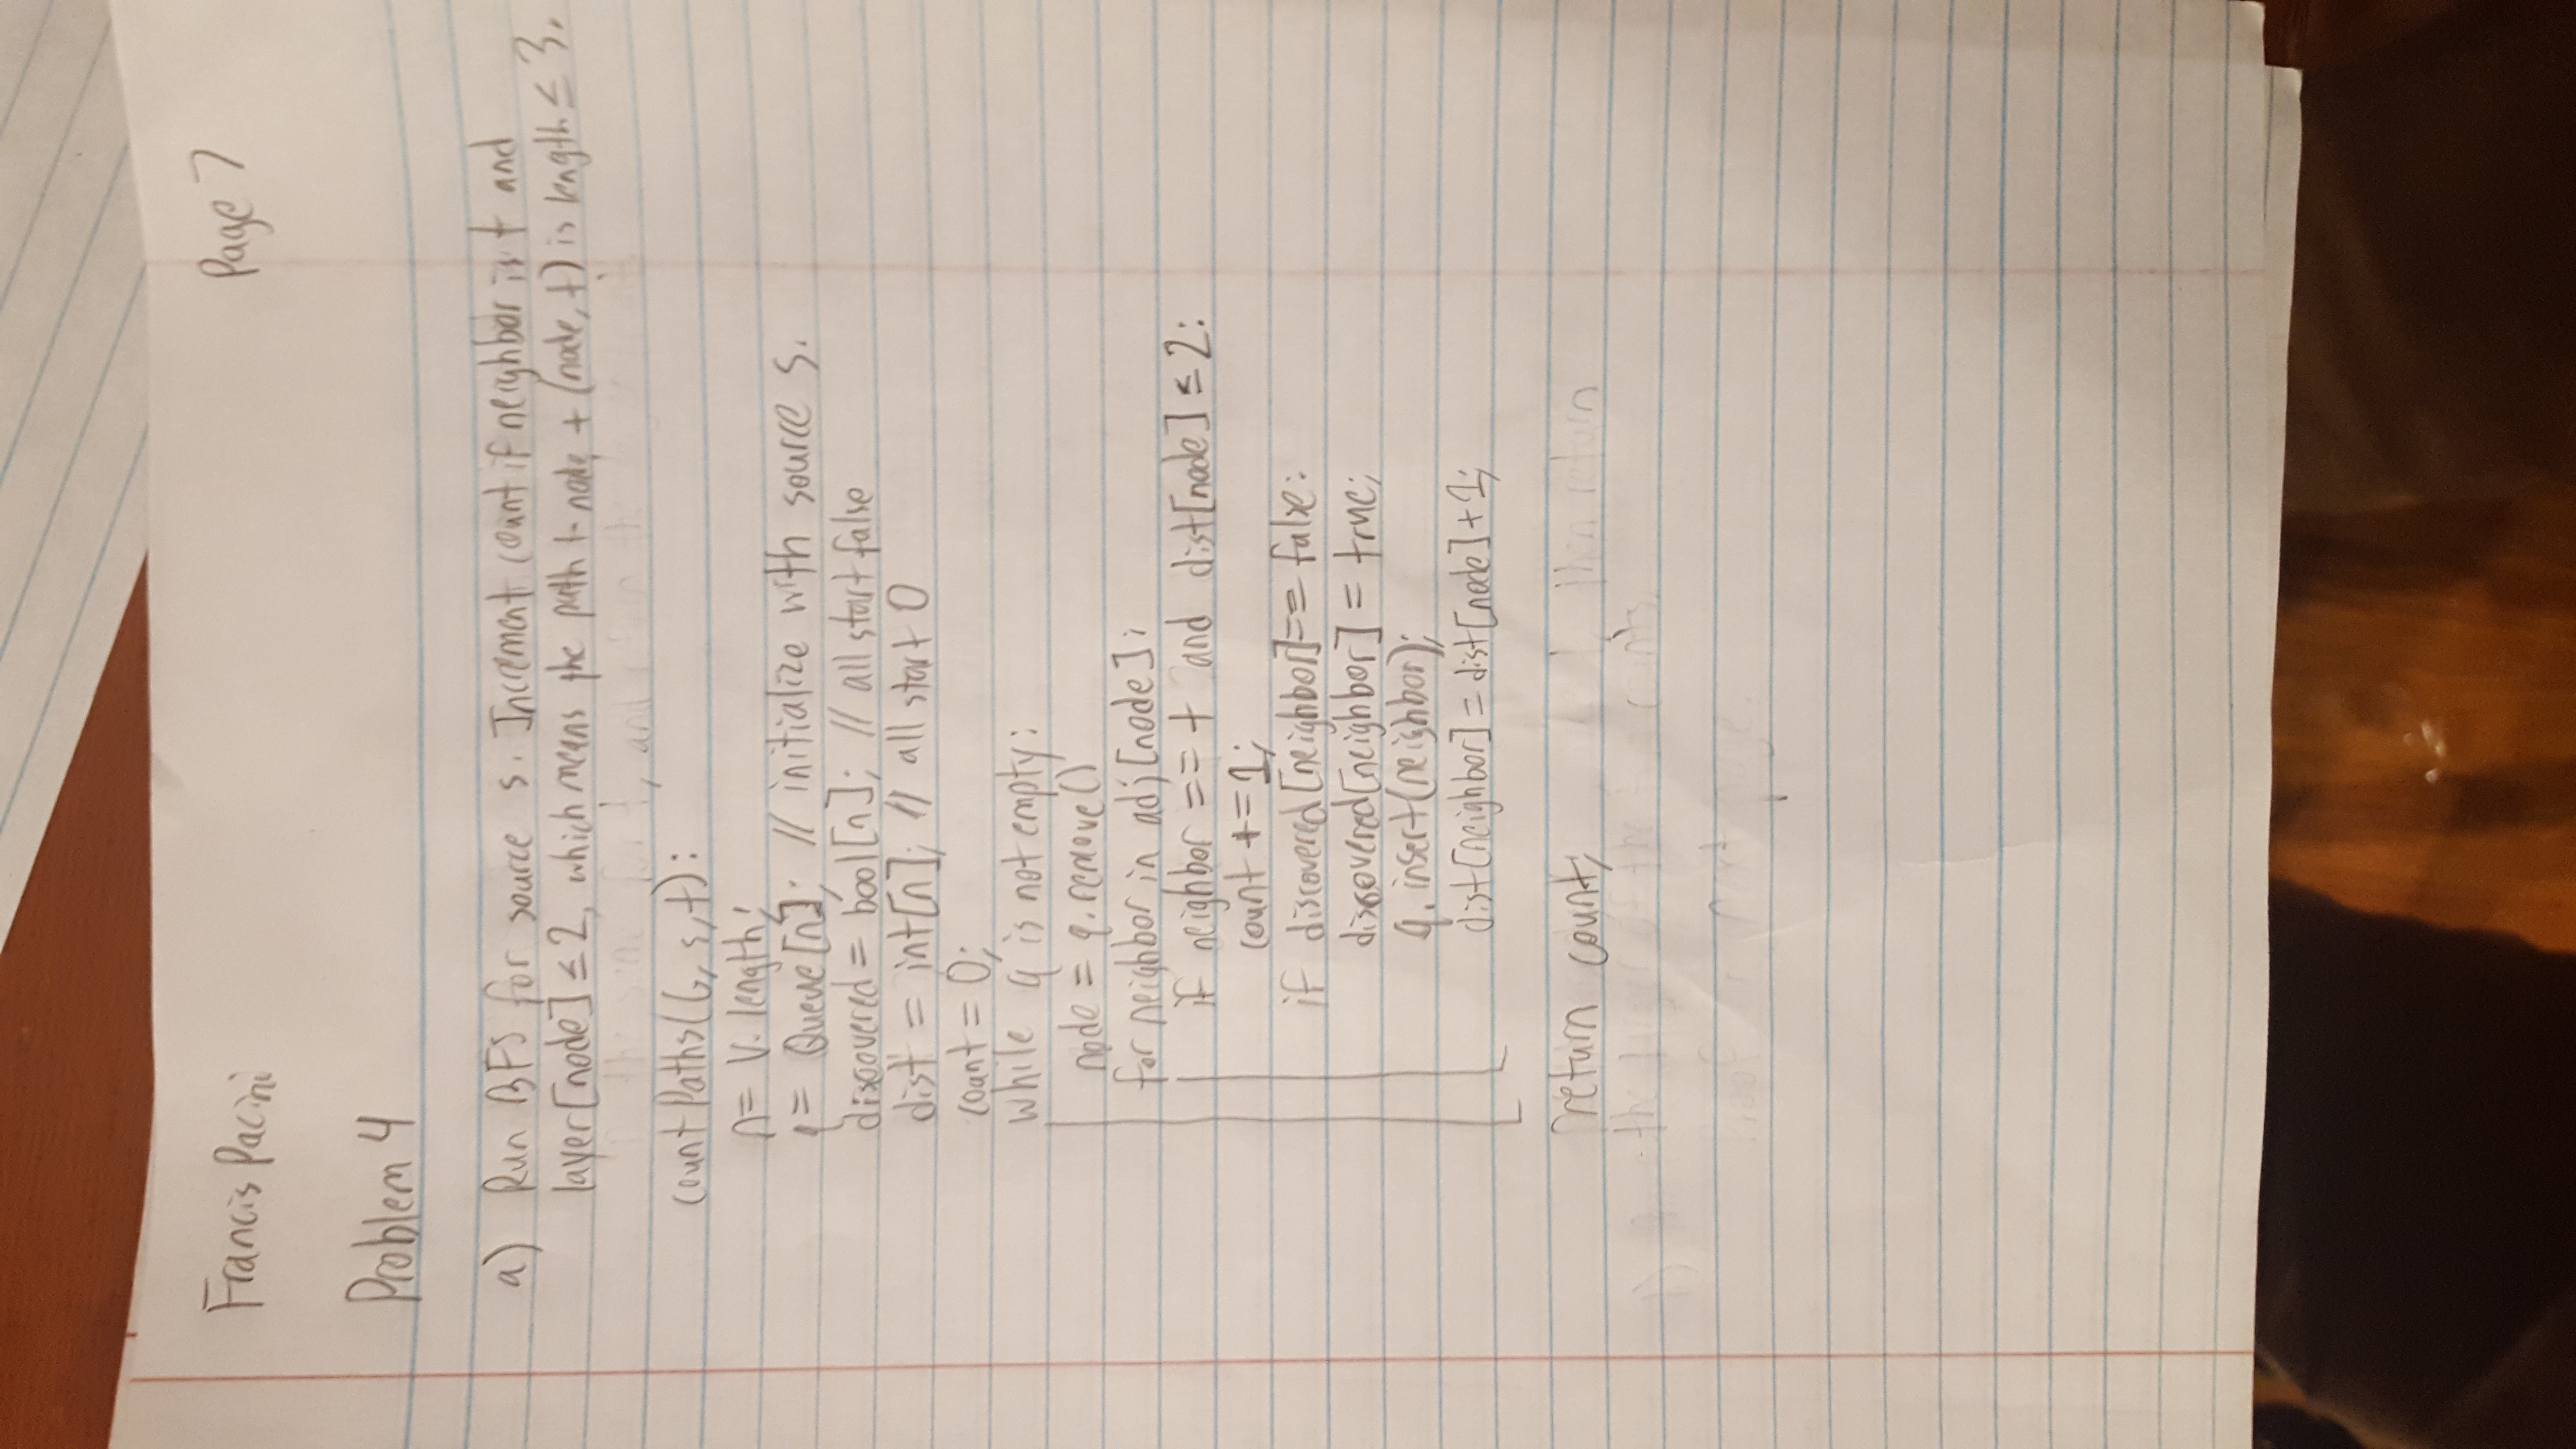 Francis Pacini
Page 7
Problem 4
a) Run BFS for source s. Increment count if neighbor is t and
layer[node] ≤ 2, which means the path to node + (node, t) is length ≤ 3.
the same for t, and the
countPaths(G, s, t):
n = V.length;
q = Queue[n]; // initialize with source s.
discovered = bool[n]; // all start false
dist = int[n]; // all start 0
count = 0;
while q is not empty:
node = q.remove()
for neighbor in adj[node]:
if neighbor == t and dist[node] ≤ 2:
count += 1;
if discovered[neighbor] == false:
discovered[neighbor] = true;
q.insert(neighbor);
dist[neighbor] = dist[node] + 1;
return count;
then return
the of the counts.
next page.